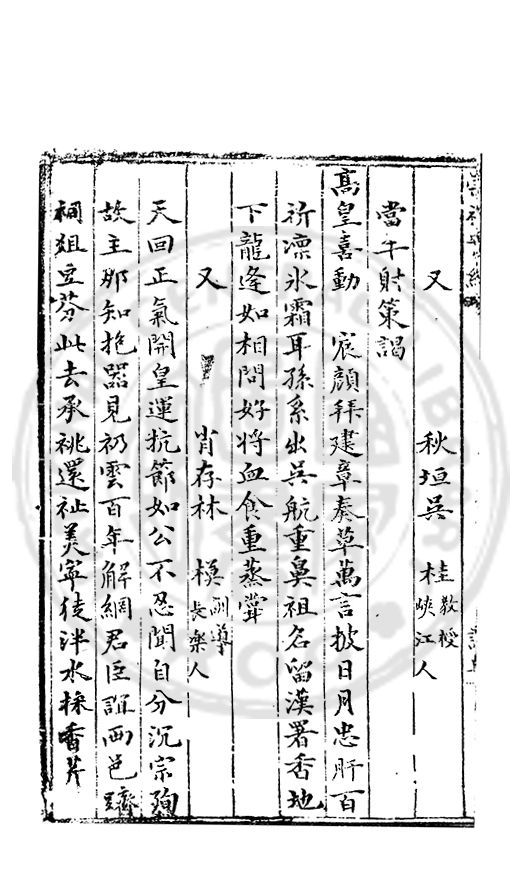 又 秋垣吳 桂 教授 峽江人
當年射策謁
高皇喜動 宸顏拜建章奏草萬言披日月忠肝百
折凜氷霜耳孫系出吳航重鼻祖名留漢署香地
下龍逄如相問好將血食重蒸嘗
又 肖存林 模 訓導 長樂人
天回正氣開皇運抗節如公不忍聞自分沉宗殉
故主那知抱器見礽雲百年解網君臣誼兩邑躋
祠俎豆芬此去承祧還祉美寧徒泮水採香芹